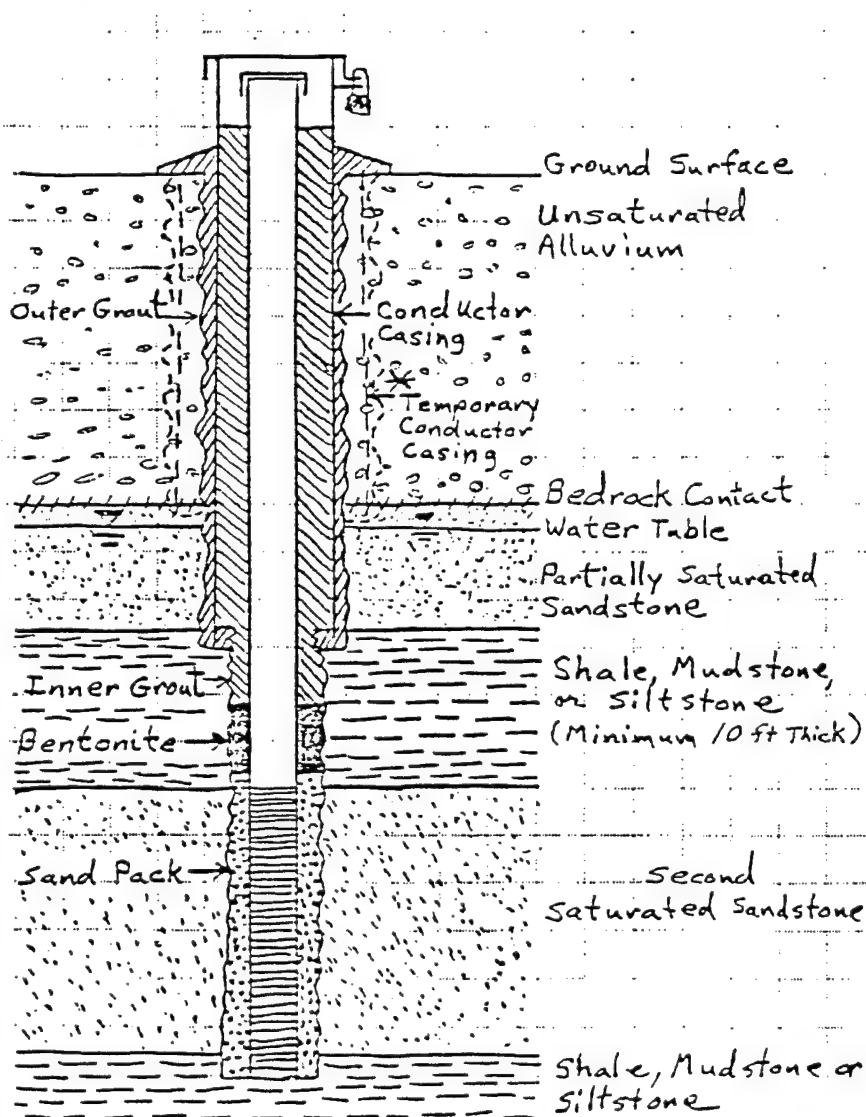 Ground Surface
Unsaturated
Alluvium
Outer Grout
Conductor
Casing
Temporary
Conductor
Casing
Bedrock Contact
Water Table
Partially Saturated
Sandstone
Inner Grout
Shale, Mudstone,
or Siltstone
(Minimum 10 ft Thick)
Bentonite
Sand Pack
Second
Saturated Sandstone
Shale, Mudstone or
Siltstone